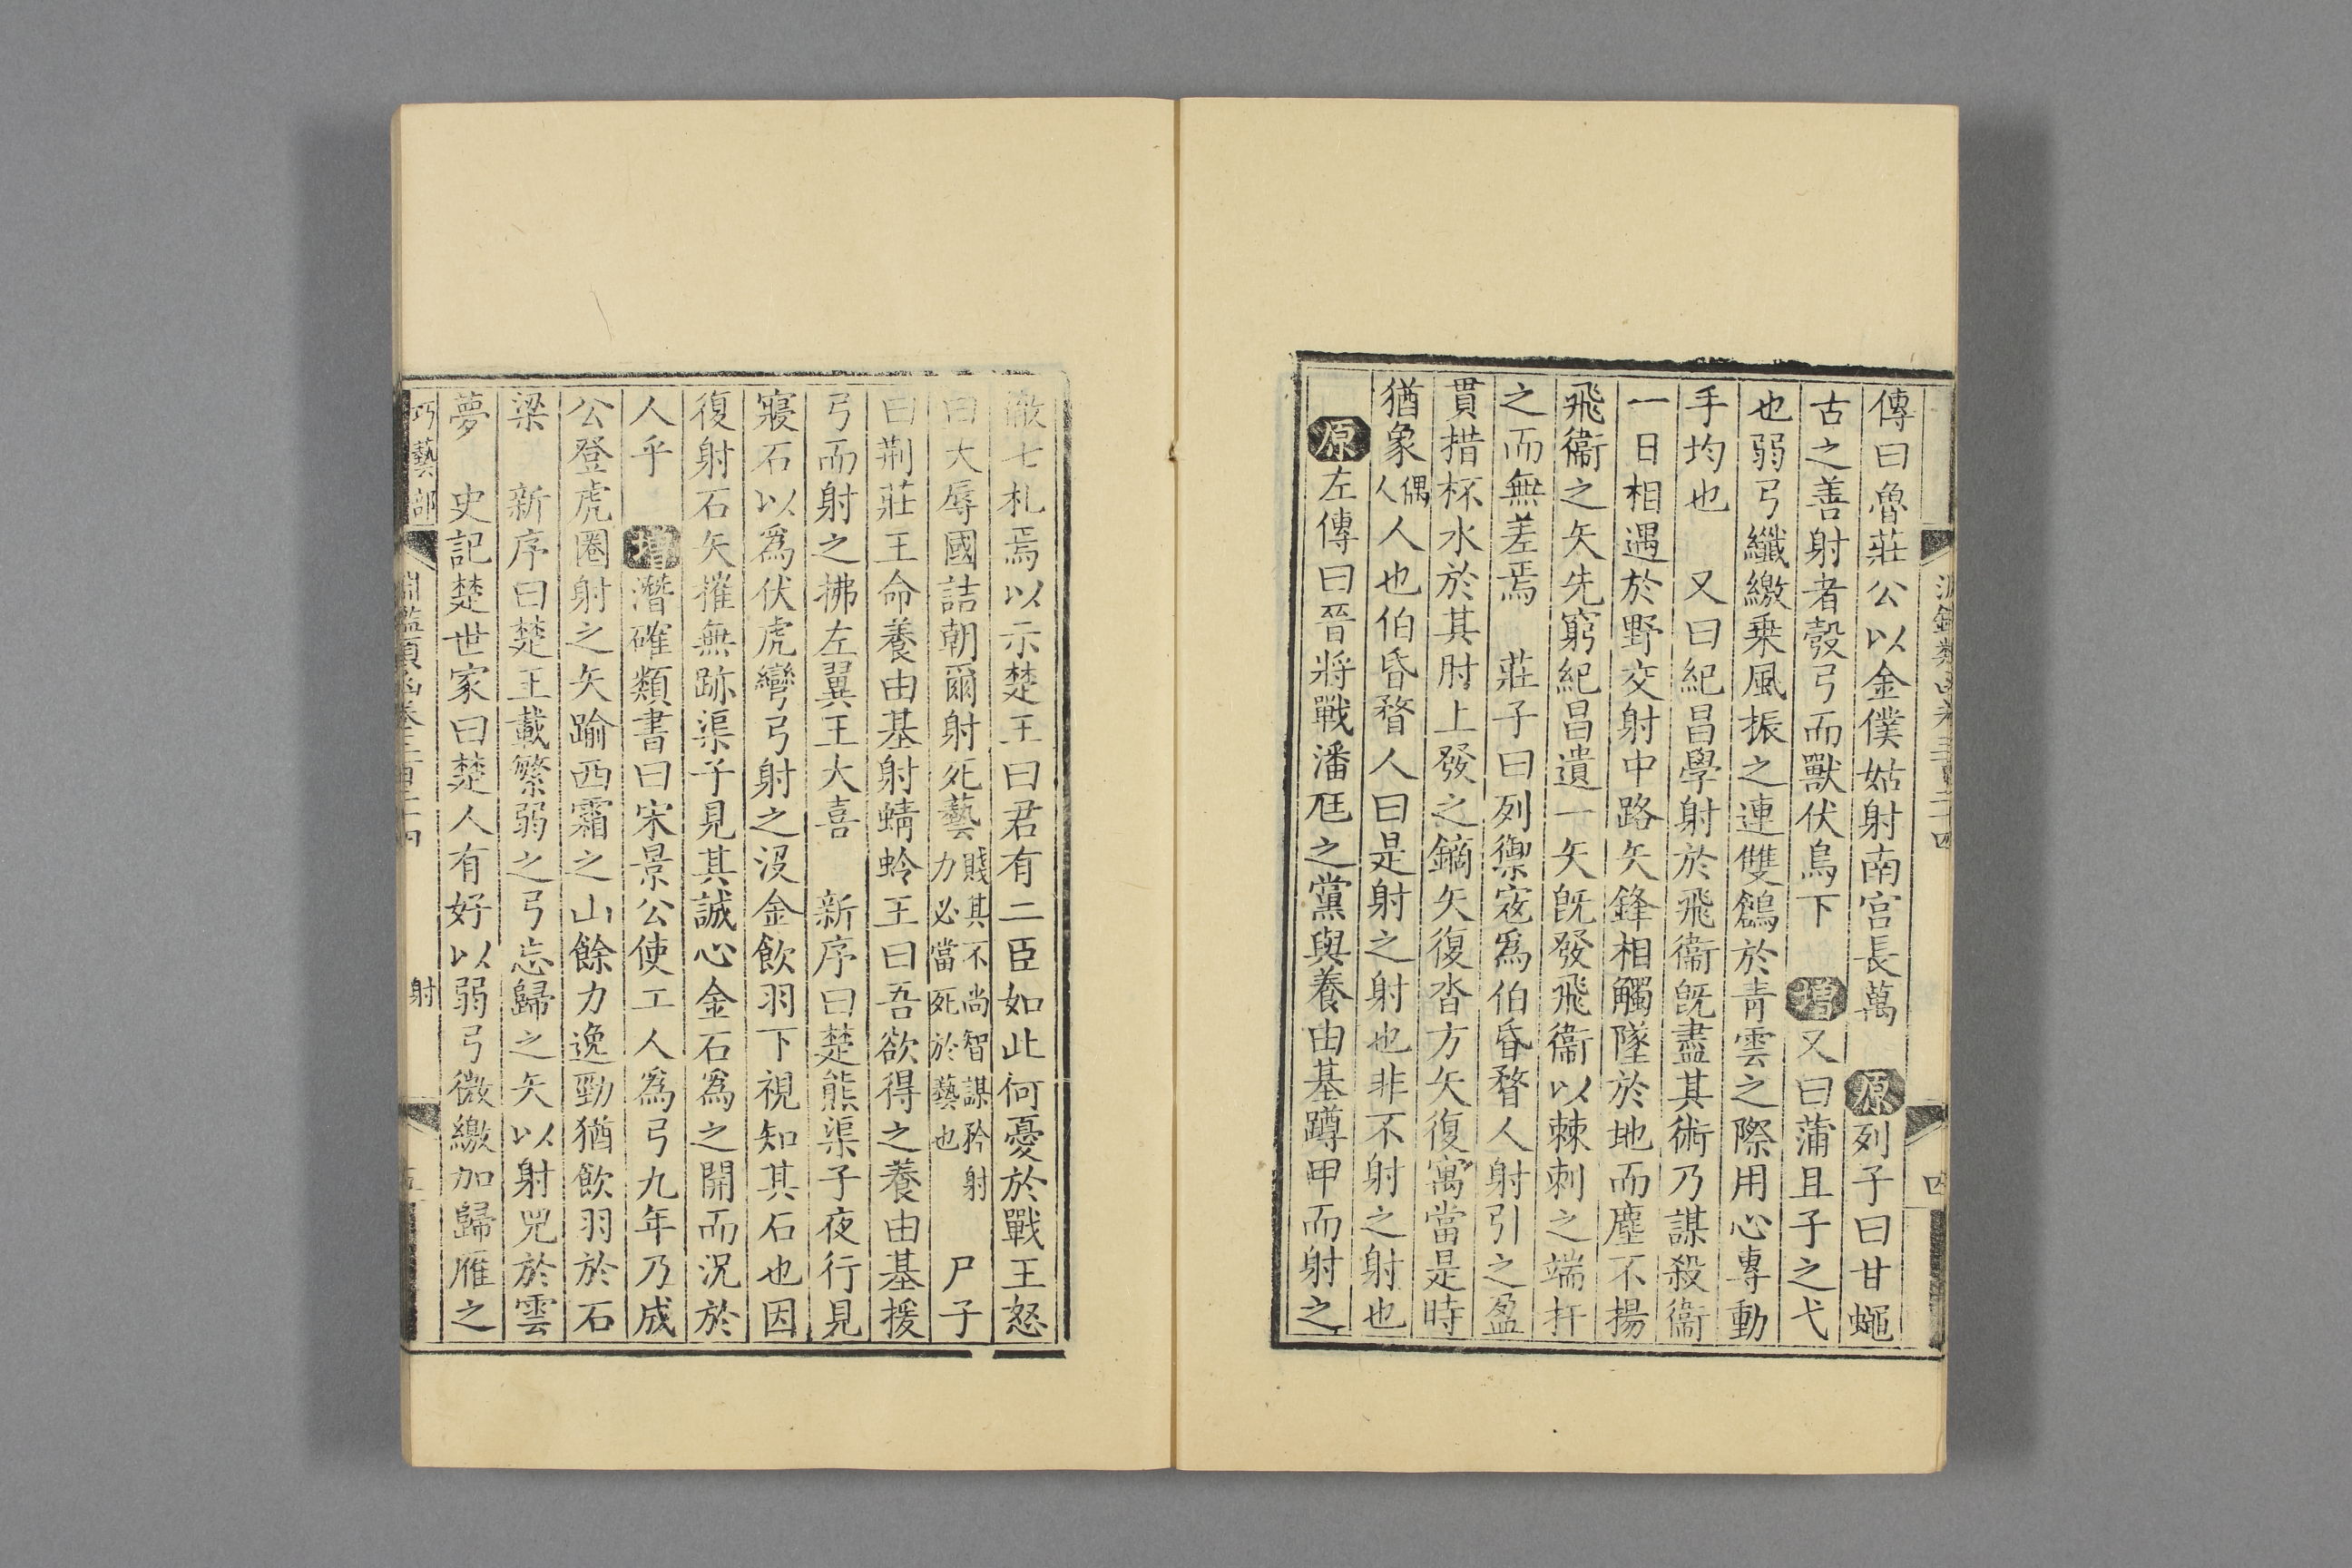 傳曰魯莊公以金僕姑射南宮長萬　原列子曰甘蠅
古之善射者彀弓而獸伏鳥下　增又曰蒲且子之弋
也弱弓纖繳乗風振之連雙鶬於青雲之際用心專動
手均也　又曰紀昌學射於飛衞旣盡其術乃謀殺衞
一日相遇於野交射中路矢鋒相觸墜於地而塵不揚
飛衞之矢先窮紀昌遺一矢旣發飛衞以棘刺之端扞
之而無差焉　莊子曰列禦寇爲伯昏瞀人射引之盈
貫措杯水於其肘上發之鏑矢復沓方矢復寓當是時
猶象偶人人也伯昏瞀人曰是射之射也非不射之射也
原左傳曰晉將戰潘尫之黨與養由基蹲甲而射之
徹七札焉以示楚王曰君有二臣如此何憂於戰王怒
曰大辱國詰朝爾射死藝賤其不尚智謀矜射力必當死於藝也　尸子
曰荆莊王命養由基射蜻蛉王曰吾欲得之養由基援
弓而射之拂左翼王大喜　新序曰楚熊渠子夜行見
寢石以爲伏虎彎弓射之沒金飲羽下視知其石也因
復射石矢摧無跡渠子見其誠心金石爲之開而況於
人乎　增潛確類書曰宋景公使工人爲弓九年乃成
公登虎圈射之矢踰西霜之山餘力逸勁猶飲羽於石
梁　新序曰楚王載繁弱之弓忘歸之矢以射兕於雲
夢　史記楚世家曰楚人有好以弱弓微繳加歸雁之
巧藝部　淵鑑類函卷三百二十四　射